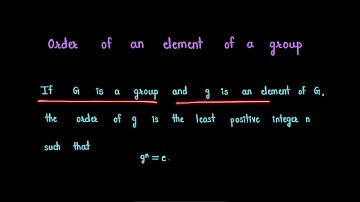 Order of an element of a group
If G is a group and g is an element of G,
the order of g is the least positive integer n
such that
gⁿ = e.